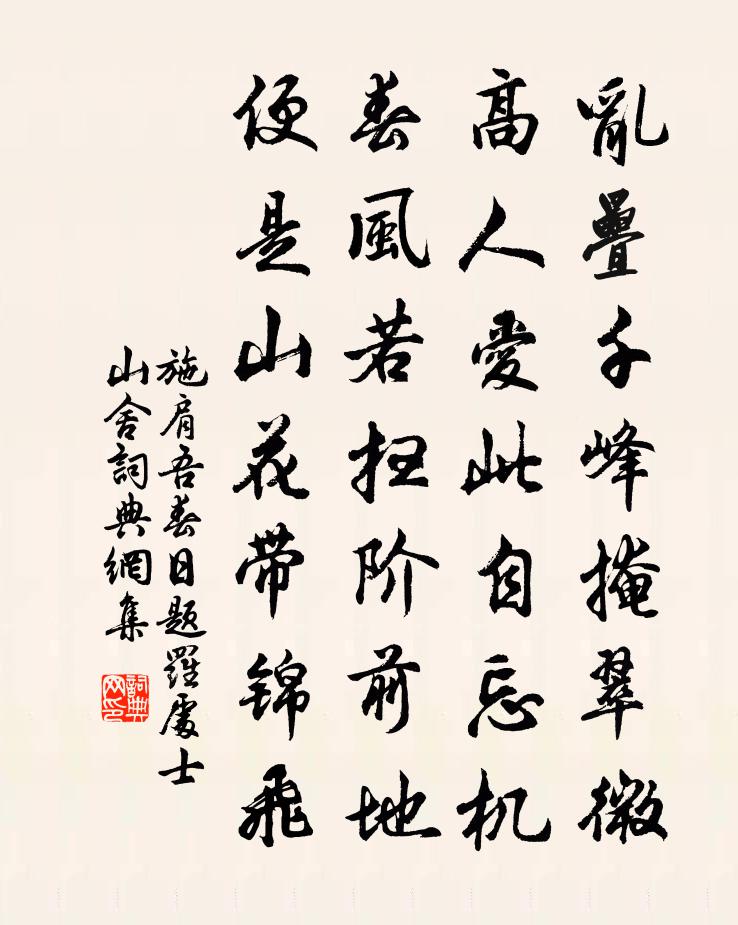 亂疊千峰掩翠微
高人愛此自忘机
春風若扫阶前地
便是山花带锦飛
施肩吾春日题羅處士
山舍詞典網集
詞典
网印